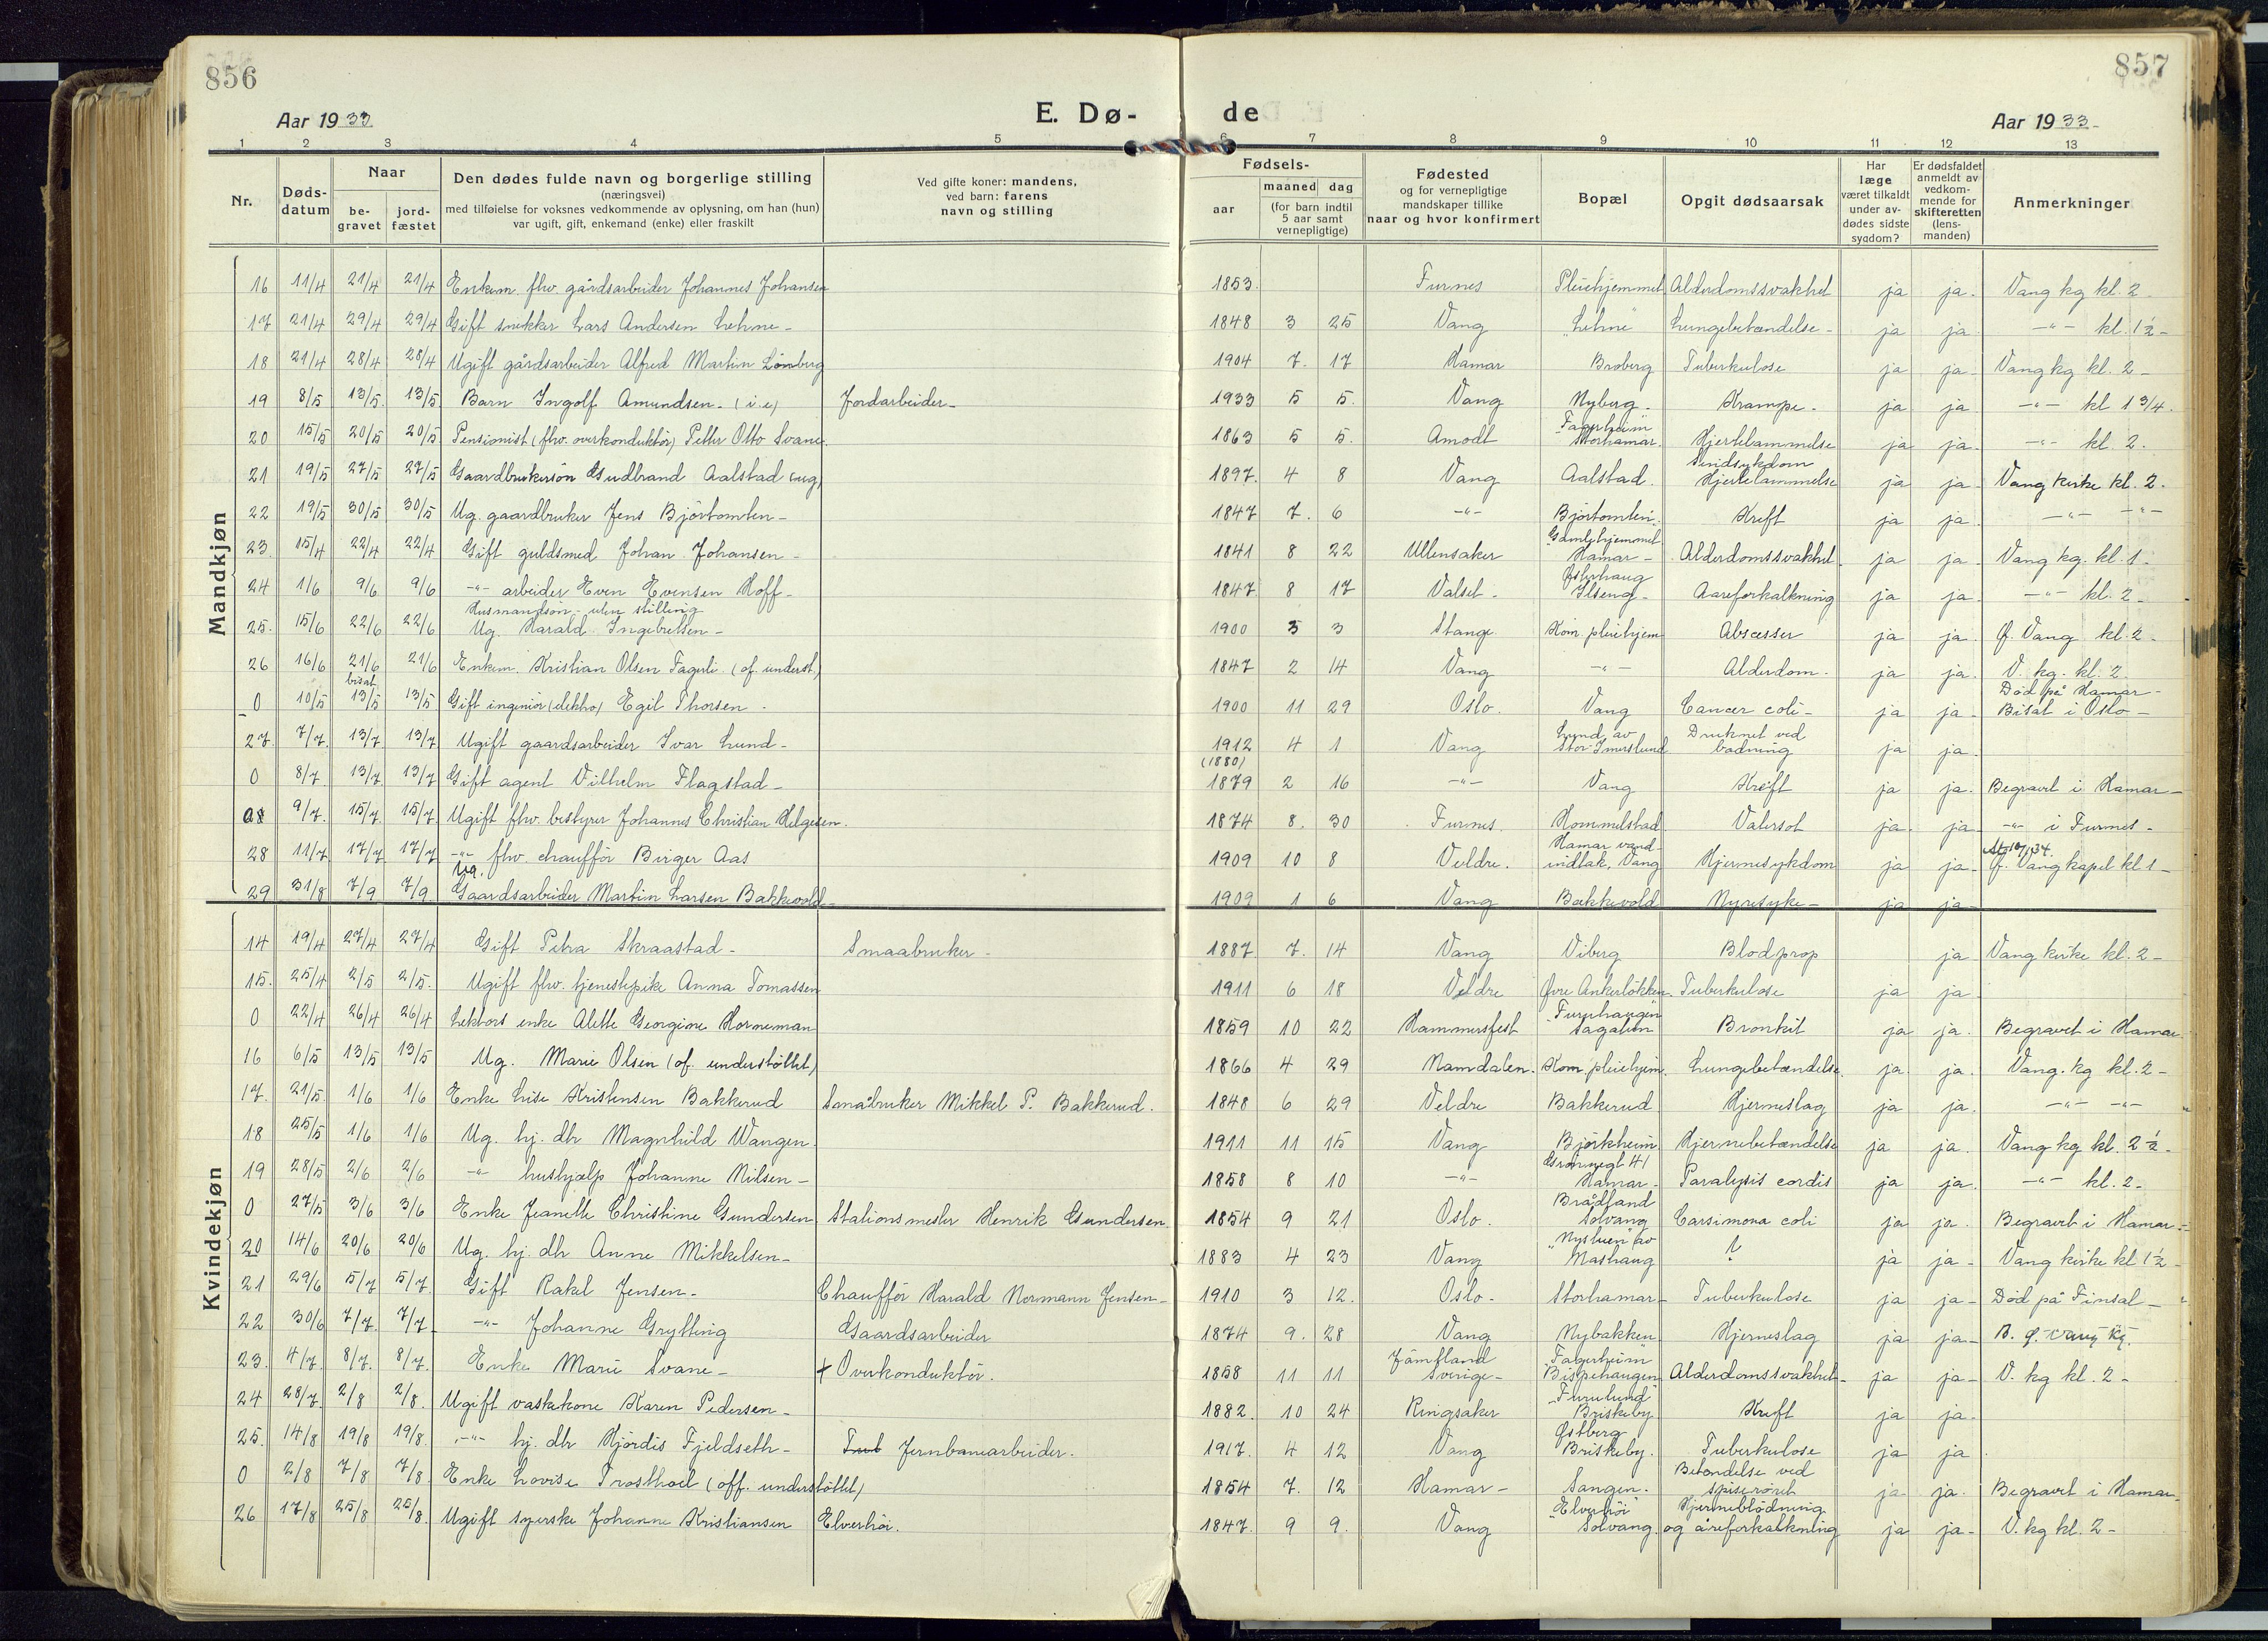 856
857
Aar 1933
E. Dø-
de
Aar 1933
1 2 3 4 5 6 7 8 9 10 11 12 13
Nr.
Døds-
datum
Naar
be-
gravet
jord-
fæstet
Den dødes fulde navn og borgerlige stilling
(næringsvei)
med tilføielse for voksnes vedkommende av oplysning, om han (hun)
var ugift, gift, enkemand (enke) eller fraskilt
Ved gifte koner: mandens,
ved barn: farens
navn og stilling
Fødsels-
aar
maaned dag
(for barn indtil
5 aar samt
vernepligtige)
Fødested
og for vernepligtige
mandskaper tillike
naar og hvor konfirmert
Bopæl
Opgit dødsaarsak
Har
læge
været tilkaldt
under av-
dødes sidste
sygdom?
Er dødsfaldet
anmeldt av
vedkom-
mende for
skifteretten
(lens-
manden)
Anmerkninger
Mandkjøn
16 11/4 21/4 21/4 Enkem. fhv. gårdsarbeider Johannes Johansen 1853. Furnes Pleiehjemmet Alderdomssvakhet ja ja. Vang kg kl. 2
17 21/4 29/4 29/4 Gift snekker Lars Andersen Lehne- 1848 3 25 Vang "Lehne" Lungebetændelse- ja ja -"- kl. 1½-
18 21/4 28/4 28/4 Ugift gårdsarbeider Alfred Martin Lömberg 1904 7. 17 Hamar Broberg Tuberkulose ja ja. Vang kg kl. 2-
19 8/5 13/5. 13/5 Barn Ingolf Amundsen- (i.e) Jordarbeider- 1933 5 5. Vang Nyberg- Krampe- ja ja -"- kl 1 3/4.
20 15/5 20/5 20/5 Pensionist (fhv. overkonduktör) Petter Otto Svane. 1863 5 5. Amodt "Fagerheim" Storhamar. Hjertelammelse ja ja. -"- kl. 2.
21 19/5 27/5 27/5 Gaardbrukersön Gudbrand Aalstad (ug) 1897. 4 8 Vang Aalstad. Sindsykdom Hjertelammelse ja ja. Vang kirke kl. 2.
22 19/5 30/5 30/5 Ug. gaardbruker Jens Bjørtomten- 1847 7. 6 -"- Bjørtomten. Kreft ja ja. -"- -"-
23. 15/4 22/4 22/4 Gift guldsmed Johan Johansen- 1841 8 22 Ullensaker Gamlehjemmet Hamar- Alderdomssvakhet- ja ja- Vang kg. kl. 1.
24 1/6 9/6 9/6 -"- arbeider Even Evensen Hoff- 1847 8 17 Valset- Østerhaug Ilseng- Aareforkalkning ja ja- -"- kl. 2-
25. 15/6 22/6 22/6 Husmandssön- uten stilling Ug. Harald Ingebretsen- 1900 5 3 Stange Kom. pleiehjem Abscesser ja ja. Ø. Vang kl. 2-
26 16/6 21/6 21/6 Enkem. Kristian Olsen Fagerli (of. underst.) 1847 2 14 Vang -"- Alderdom. ja ja. V. kg. kl. 2.
0 10/5 bisat 13/5 13/5 Gift ingeniör (elektro) Egil Thorsen. 1900 11 29 Oslo. Vang Cancer coli- ja ja- Død på Hamar- Bisat i Oslo-
27. 7/7. 13/7 13/7 Ugift gaardsarbeider Ivar Lund- 1912 4 1 Vang Lund av Stor-Imerslund Druknet ved badning ja ja.
0 8/7. 13/7 13/7 Gift agent Vilhelm Flagstad- (1880) 1879 2 16 -"- Vang Kreft ja ja. Begravet i Hamar-
9/7. 15/7. 15/7. Ugift fhv. bestyrer Johannes Christian Helgesen. 1874 8. 30 Furnes. Hommelstad. Vatersot ja ja. -"- i Furnes-
28 11/7 17/7 17/7 -"- fhv. chaufför Birger Aas 1909 10 8 Veldre. Hamar vand- indtak, Vang Hjernesykdom ja ja- Ø. Vang kapel kl 1-
29 31/8 7/9 7/9 Ug. Gaardsarbeider Martin Larsen Bakkevold- 1909 1 6 Vang Bakkevold Nyresyke- ja ja-
Kvindekjøn
14 19/4 27/4 27/4 Gift Petra Skraastad- Smaabruker- 1887 7. 14 Vang Viberg Blodprop ja Vang kirke kl. 2-
15. 25/4 2/5 2/5. Ugift fhv. tjenestepike Anna Tomassen 1911 6 18 Veldre Øvre Ankerløkken. Tuberkulose ja ja
0 22/4 26/4 26/4 Lektors enke Alette Georgine Horneman 1859 10 22 Hammersfest "Furuhaugen" Sagatun Bronkit ja ja. Begravet i Hamar.
16 6/5 13/5 13/5 Ug. Marie Olsen (of. understöttet) 1866 4 29 Namdalen. Kom. pleiehjem. Lungebetændelse. ja ja. Vang. kg kl. 2-
17. 21/5 1/6 1/6 Enke Lise Kristensen Bakkerud Småbruker Mikkel P. Bakkerud. 1848 6 29 Veldre Bakkerud Hjerneslag ja ja. -"- -"-
18 25/5 1/6 1/6 Ug. hj. dtr Magnhild Wangen. 1911 11 15 Vang Bjørkheim Hjernebetændelse ja ja. Vang kg kl. 2½-
19 28/5 2/6 2/6 -"- hushjælp Johanne Nilsen- 1858 8 10 -"- Grønnegt 41 Hamar- Paralysis cordis ja ja. -"- kl. 2-
0 27/5 3/6 3/6 Enke Jeanette Christine Gundersen Stationsmester Henrik Gundersen 1854 9 21 Oslo. Brådland Solvang Carsimona coli ja ja. Begravet i Hamar-
20 14/6 20/6 20/6 Ug. hj. dtr Anne Mikkelsen- 1883 4 23 Vang "Nystuen" av Mashaug ? ja ja- Vang kirke kl 1½-
21 29/6 5/7 5/7. Gift Rakel Jensen- Chaufför Harald Normann Jensen- 1910 3 12. Oslo- Storhamar- Tuberkulose ja ja- Død på Finsal-
22 30/6 7/7. 7/7. -"- Johanne Grytting Gaardsarbeider 1874 9. 28 Vang Nybakken Hjerneslag ja ja- B. Ø. Vang kg.
23. 4/7. 8/7. 8/7. Enke Marie Svane- + Overkonduktör. 1858 11 11 Jämtland Sverige- "Fagerheim" Bispehaugen Alderdomssvakhet- ja ja- V. kg kl. 2-
24 28/7. 2/8 2/8. Ugift vaskekone Karen Pedersen- 1882. 10 24 Ringsaker "Furulund" Briskeby Kreft ja ja-
25. 14/8 19/8 19/8. -"- hj. dtr Hjördis Fjeldseth- Jernbanearbeider. 1917. 4 12 Vang Østberg Briskeby. Tuberkulose ja ja
0 2/8 7/8 7/8. Enke Lovise Trosthoel (off. understöttet) 1854 7. 12 Hamar- Sangen. Betændelse ved spiserøret ja ja. Begravet i Hamar.
26 17/8 25/8 25/8. Ugift syerske Johanne Kristiansen Elverhöi. 1847. 9 9. Vang "Elverhöi" Solvang Hjerneblödning og åreforkalkning ja ja- V. kg kl. 2-